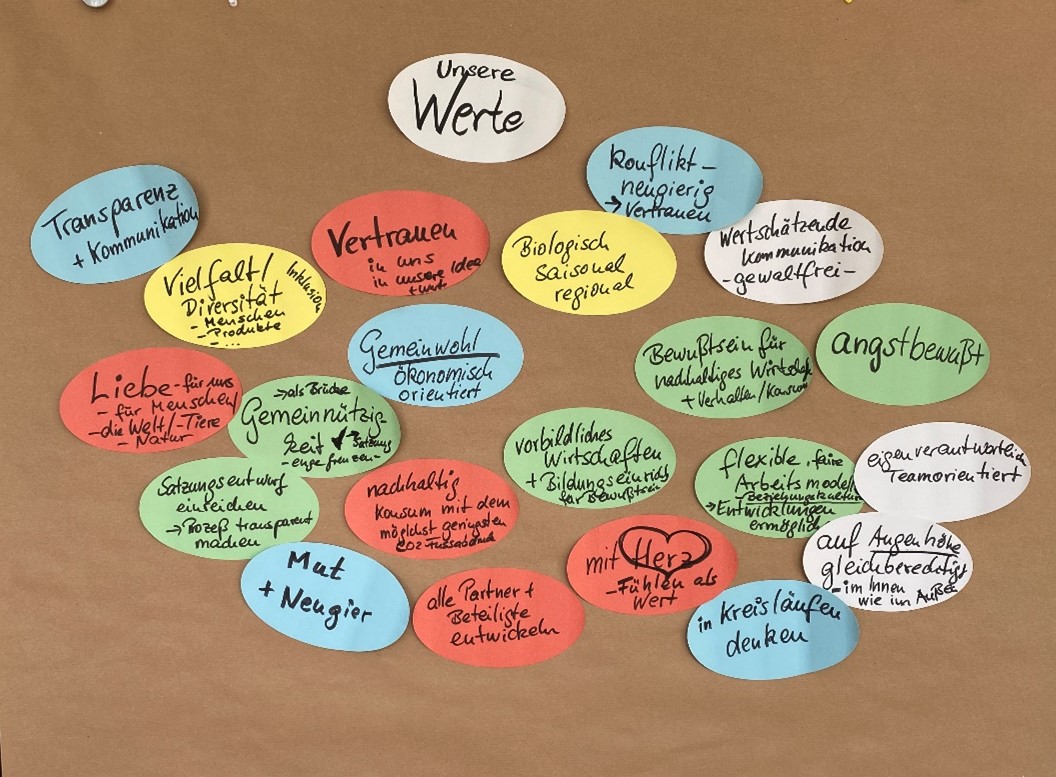 Unsere
Werte
Konflikt-
neugierig
→ Vertrauen
Transparenz
+ Kommunikation
Vertrauen
in uns
in unsere Idee
+ wut
Biologisch
Saisonal
regional
Wertschätzende
Kommunikation
- gewaltfrei -
Vielfalt/
Diversität
- Menschen
- Produkte
- ...
Inklusion
Gemeinwohl
ökonomisch
orientiert
Bewußtsein für
nachhaltiges Wirtschaft
+ Verhalten/Konsum
angstbewußt
Liebe - für uns
- für Menschen/
- die Welt/-Tiere
- Natur
→ als Brücke
Gemeinnützig-
keit
→ Satzung
- enge Grenzen -
vorbildliches
Wirtschaften
+ Bildungseinricht
für Bewußtsein
flexible, faire
Arbeitsmodelle
- Beziehungskultur
→ Entwicklungen
ermöglich
eigenverantwortlich
Teamorientiert
Satzungsentwurf
einreichen
→ Prozeß transparent
machen
nachhaltig
Konsum mit dem
möglichst geringsten
CO2 Fussabdruck
mit Herz
- Fühlen als
Wert
auf Augenhöhe
gleichberechtigt
- im Innen
wie im Außen
Mut
+ Neugier
alle Partner +
Beteiligte
entwickeln
in kreisläufen
denken